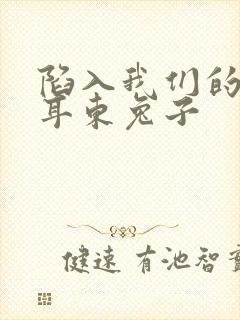 陷入我们的
耳东兔子
健速 有池智